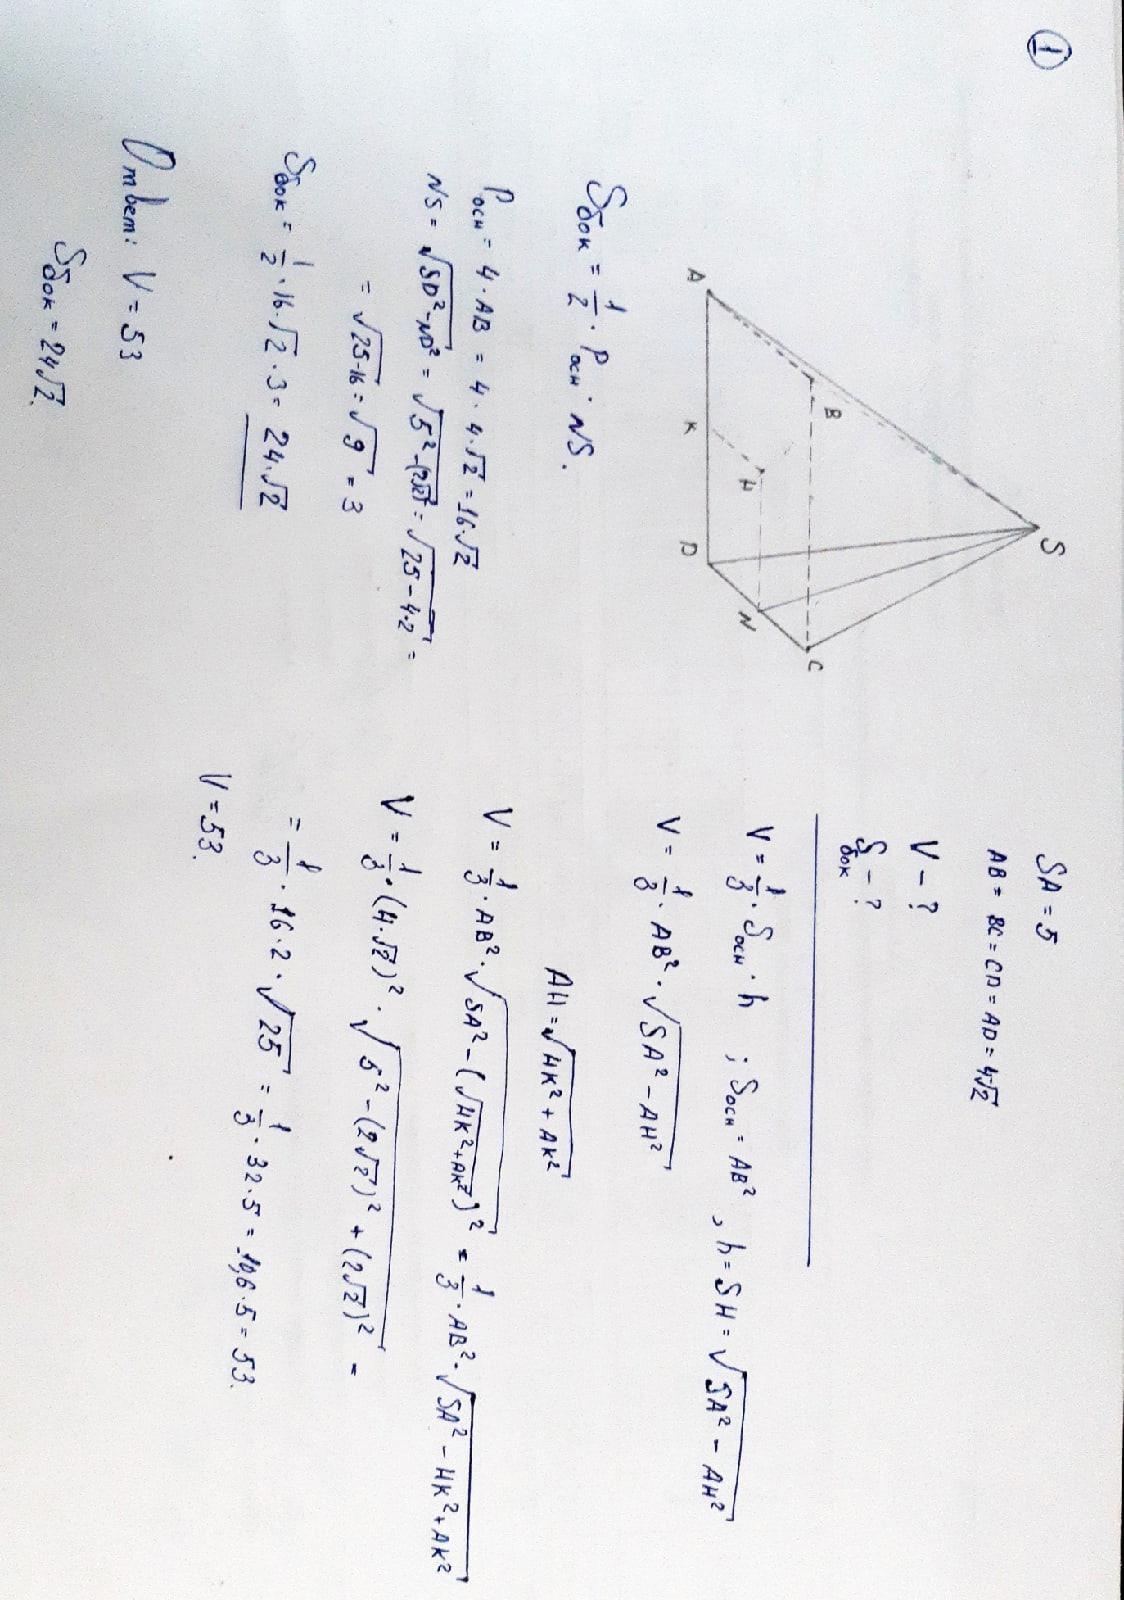 1
S
A
B
K
H
D
N
C
SA = 5
AB = BC = CD = AD = 4√2
V - ?
Sбок - ?
V = 1/3 · Sосн · h ; Sосн = AB², h = SH = √(SA² - AH²)
V = 1/3 · AB² · √(SA² - AH²)
AH = √(HK² + AK²)
V = 1/3 · AB² · √(SA² - (√(HK² + AK²))²) = 1/3 · AB² · √(SA² - HK² + AK²)
V = 1/3 · (4·√2)² · √(5² - (2√2)² + (2√2)²) =
= 1/3 · 16 · 2 · √25 = 1/3 · 32 · 5 = 10,6 · 5 = 53.
V = 53.
Sбок = 1/2 · Pосн · NS.
Pосн = 4 · AB = 4 · 4·√2 = 16·√2
NS = √(SD² - ND²) = √(5² - (2√2)²) = √(25 - 4·2) =
= √(25-16) = √9 = 3
Sбок = 1/2 · 16·√2 · 3 = 24·√2
Ответ: V = 53
Sбок = 24√2.